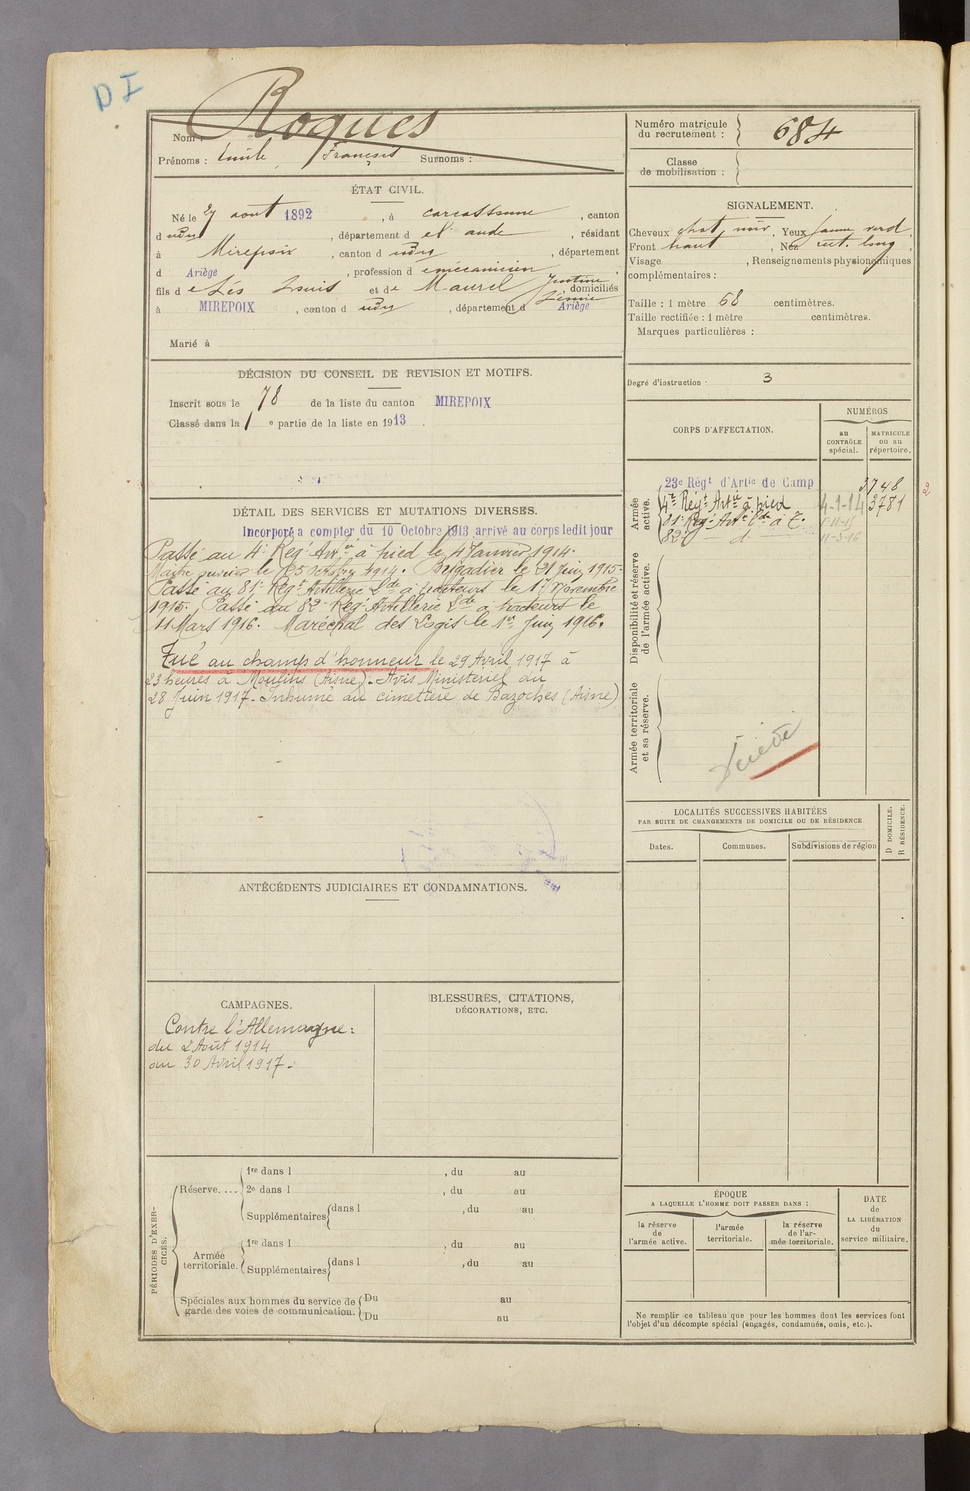 D I
Nom : Roques
Prénoms : Emile, François Surnoms :
Numéro matricule du recrutement : 684
Classe de mobilisation :
ÉTAT CIVIL.
Né le 27 aout 1892, à carcassonne, canton
d udy, département d el' aude, résidant
à Mirepoix, canton d udy, département
d Ariège, profession d e mécanicien,
fils d e Louis et de Maurel Justine domiciliés
à MIREPOIX, canton d udy, département d Ariège
Marié à
SIGNALEMENT.
Cheveux chat, noir, Yeux jaune verd,
Front haut, Nez rect. long,
Visage , Renseignements physionomiques
complémentaires :
Taille : 1 mètre 68 centimètres.
Taille rectifiée : 1 mètre centimètres.
Marques particulières :
Degré d'instruction · 3
DÉCISION DU CONSEIL DE REVISION ET MOTIFS.
Inscrit sous le 78 de la liste du canton MIREPOIX
Classé dans la 1 e partie de la liste en 1913.
CORPS D'AFFECTATION.
NUMÉROS
au CONTRÔLE spécial.
MATRICULE ou au répertoire.
Armée active.
23e Régt d'Artie de Camp 3748
4e Régt Artie à pied 4-1-14 3781
81e Régt Artie Lde à T. 1-11-15
82e d 11-3-16
Disponibilité et réserve de l'armée active.
Armée territoriale et sa réserve.
Décédé
DÉTAIL DES SERVICES ET MUTATIONS DIVERSES.
Incorporé a compter du 10 Octobre 1913 arrivé au corps ledit jour
Passé au 4e Régt Artie à pied le 4 Janvier 1914.
Maitre ouvrier le 25 Octobre 1914. Brigadier le 21 Juin 1915.
Passé au 81e Régt Artillerie Lde à tracteurs le 1er Novembre
1915. Passé au 82e Régt Artillerie Lde à tracteurs le
11 Mars 1916. Maréchal des Logis le 1er Juin 1916.
Tué au champ d'honneur le 29 Avril 1917 à
23 heures à Moulins (Aisne). Avis Ministeriel du
28 Juin 1917. Inhumé au cimetière de Bazoches (Aisne)
LOCALITÉS SUCCESSIVES HABITÉES
PAR SUITE DE CHANGEMENTS DE DOMICILE OU DE RÉSIDENCE
D DOMICILE.
R RÉSIDENCE.
Dates. Communes. Subdivisions de région
ANTÉCÉDENTS JUDICIAIRES ET CONDAMNATIONS.
CAMPAGNES.
Contre l'Allemagne :
du 2 Août 1914
au 30 Avril 1917.
BLESSURES, CITATIONS,
DÉCORATIONS, ETC.
PÉRIODES D'EXERCICES.
Réserve....
1re dans l , du au
2e dans l , du au
Supplémentaires dans l , du au
Armée territoriale.
1re dans l , du au
Supplémentaires dans l , du au
Spéciales aux hommes du service de Du au
garde des voies de communication. Du au
ÉPOQUE
A LAQUELLE L'HOMME DOIT PASSER DANS :
la réserve de l'armée active.
l'armée territoriale.
la réserve de l'armée territoriale.
DATE de LA LIBÉRATION du service militaire.
Ne remplir ce tableau que pour les hommes dont les services font
l'objet d'un décompte spécial (engagés, condamnés, omis, etc.).